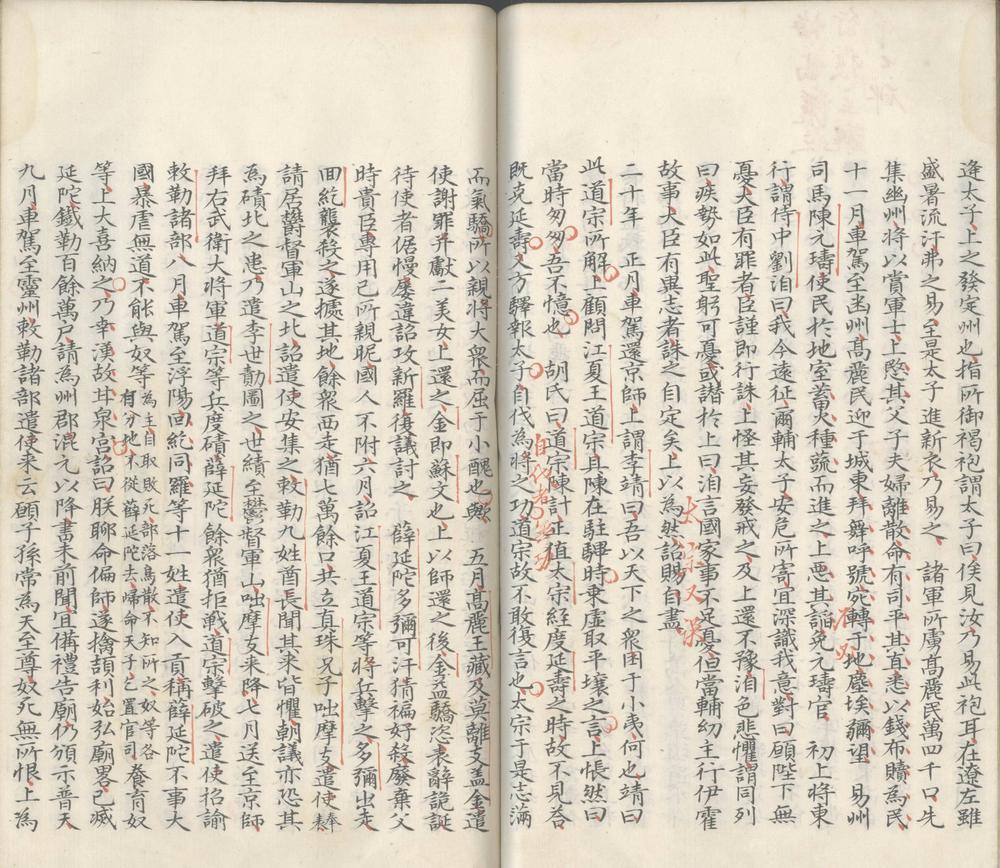 逢太子上之發定州也指所御褐袍謂太子曰俟見汝乃易此袍耳在遼左雖
盛暑流汗弗之易至是太子進新衣乃易之　諸軍所虜髙麗民萬四千口先
集幽州將以賞軍士上愍其父子夫婦離散命有司平其直悉以錢布贖為民
十一月車駕至幽州髙麗民迎于城東拜舞呼號宛轉于地塵埃彌望　易州
司馬陳元璹使民於地室蓄火種蔬而進之上惡其謟免元璹官　初上將東
行謂侍中劉洎曰我今遠征爾輔太子安危所寄宜深識我意對曰願陛下無
憂大臣有罪者臣謹即行誅上怪其妄發戒之及上還不豫洎色悲懼謂同列
曰疾勢如此聖躬可憂或譖於上曰洎言國家事不足憂但當輔幼主行伊霍
故事大臣有異志者誅之自定矣上以為然詔賜自盡
二十年　正月車駕還京師上謂李靖曰吾以天下之衆困于小夷何也靖曰
此道宗所解上顧問江夏王道宗具陳在駐驆時乘虛取平壤之言上悵然曰
當時匆匆吾不憶也　胡氏曰道宗陳計正值太宗經度延壽之時故不見荅
既克延壽又方驛報太子自伐為將之功道宗故不敢復言也太宗于是志滿
而氣驕所以親將大衆而屈于小醜也歟　五月髙麗王藏及莫離支盖金遣
使謝罪并獻二美女上還之金即蘇文也上以師還之後金益驕恣表辭詭誕
待使者倨慢屢違詔攻新羅復議討之　薛延陀多彌可汗猜褊好殺廢棄父
時貴臣專用己所親昵國人不附六月詔江夏王道宗等將兵擊之多彌出走
回紇襲殺之遂據其地餘衆西走猶七萬餘口共立真珠兄子咄摩支遣使奉表
請居欝督軍山之北詔遣使安集之敕勒九姓酋長聞其来皆懼朝議亦恐其
為磧北之患乃遣李世勣圖之世績至鬱督軍山咄摩支来降七月送至京師
拜右武衛大將軍道宗等兵度磧薛延陀餘衆猶拒戰道宗擊破之遣使招諭
敕勒諸部八月車駕至浮陽回紇同羅等十一姓遣使入貢稱薛延陀不事大
國暴虐無道不能與奴等為主自取敗死部落鳥散不知所之奴等各有分地不從薛延陀去歸命天子乞置官司養育奴
等上大喜納之乃幸漢故甘泉宮詔曰朕聊命偏師遂擒頡利始弘廟畧已滅
延陀鐵勒百餘萬户請為州郡混元以降書未前聞宜備禮告廟仍頒示普天
九月車駕至靈州敕勒諸部遣使来云願子孫常為天至尊奴死無所恨上為
太宗又誤